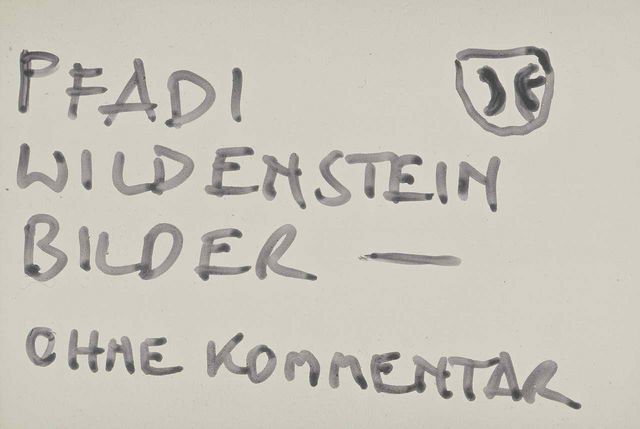 PFADI
WILDENSTEIN
BILDER —
OHNE KOMMENTAR